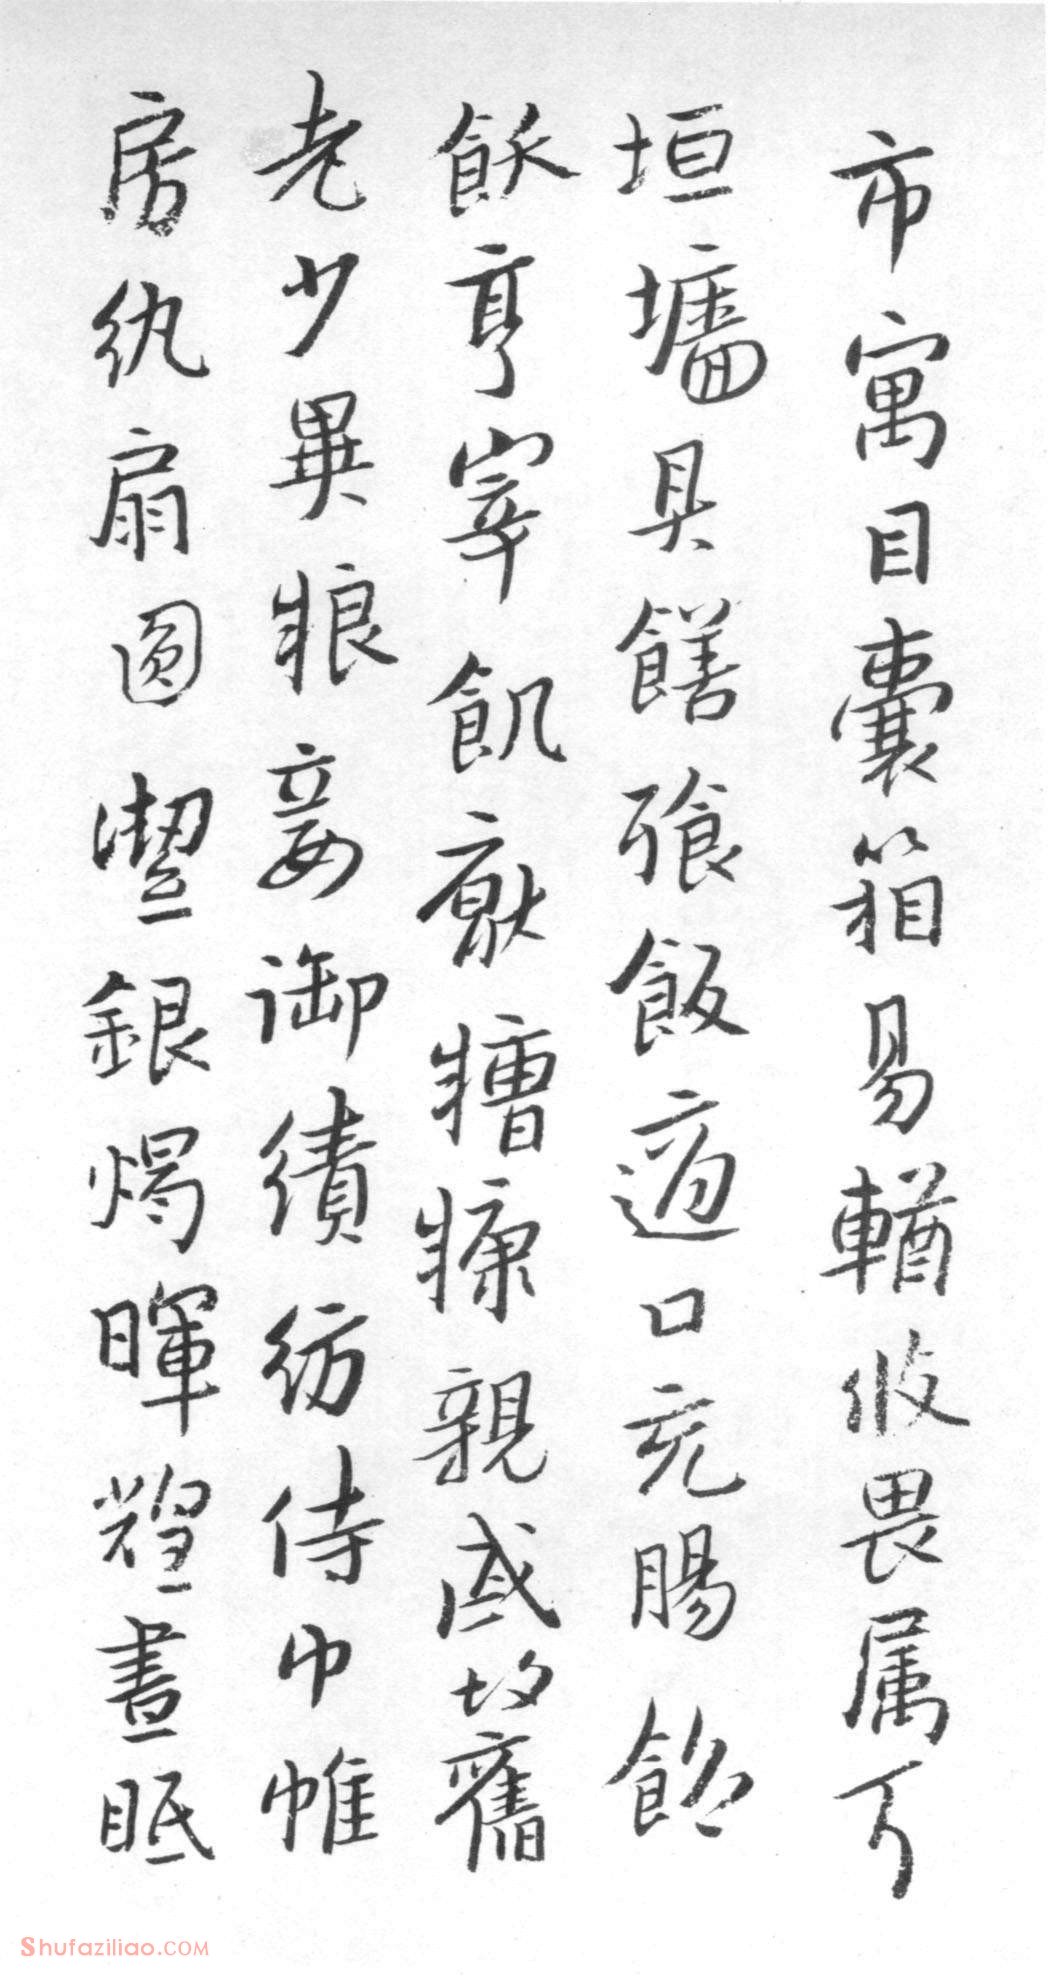 市寓目囊箱易輶攸畏属耳
垣墻具饍飡飯適口充腸飽
飫享宰飢厭糟糠親戚故舊
老少異粮妾御績紡侍巾帷
房紈扇圓潔銀燭暐煌晝眠
Shufaziliao.COM